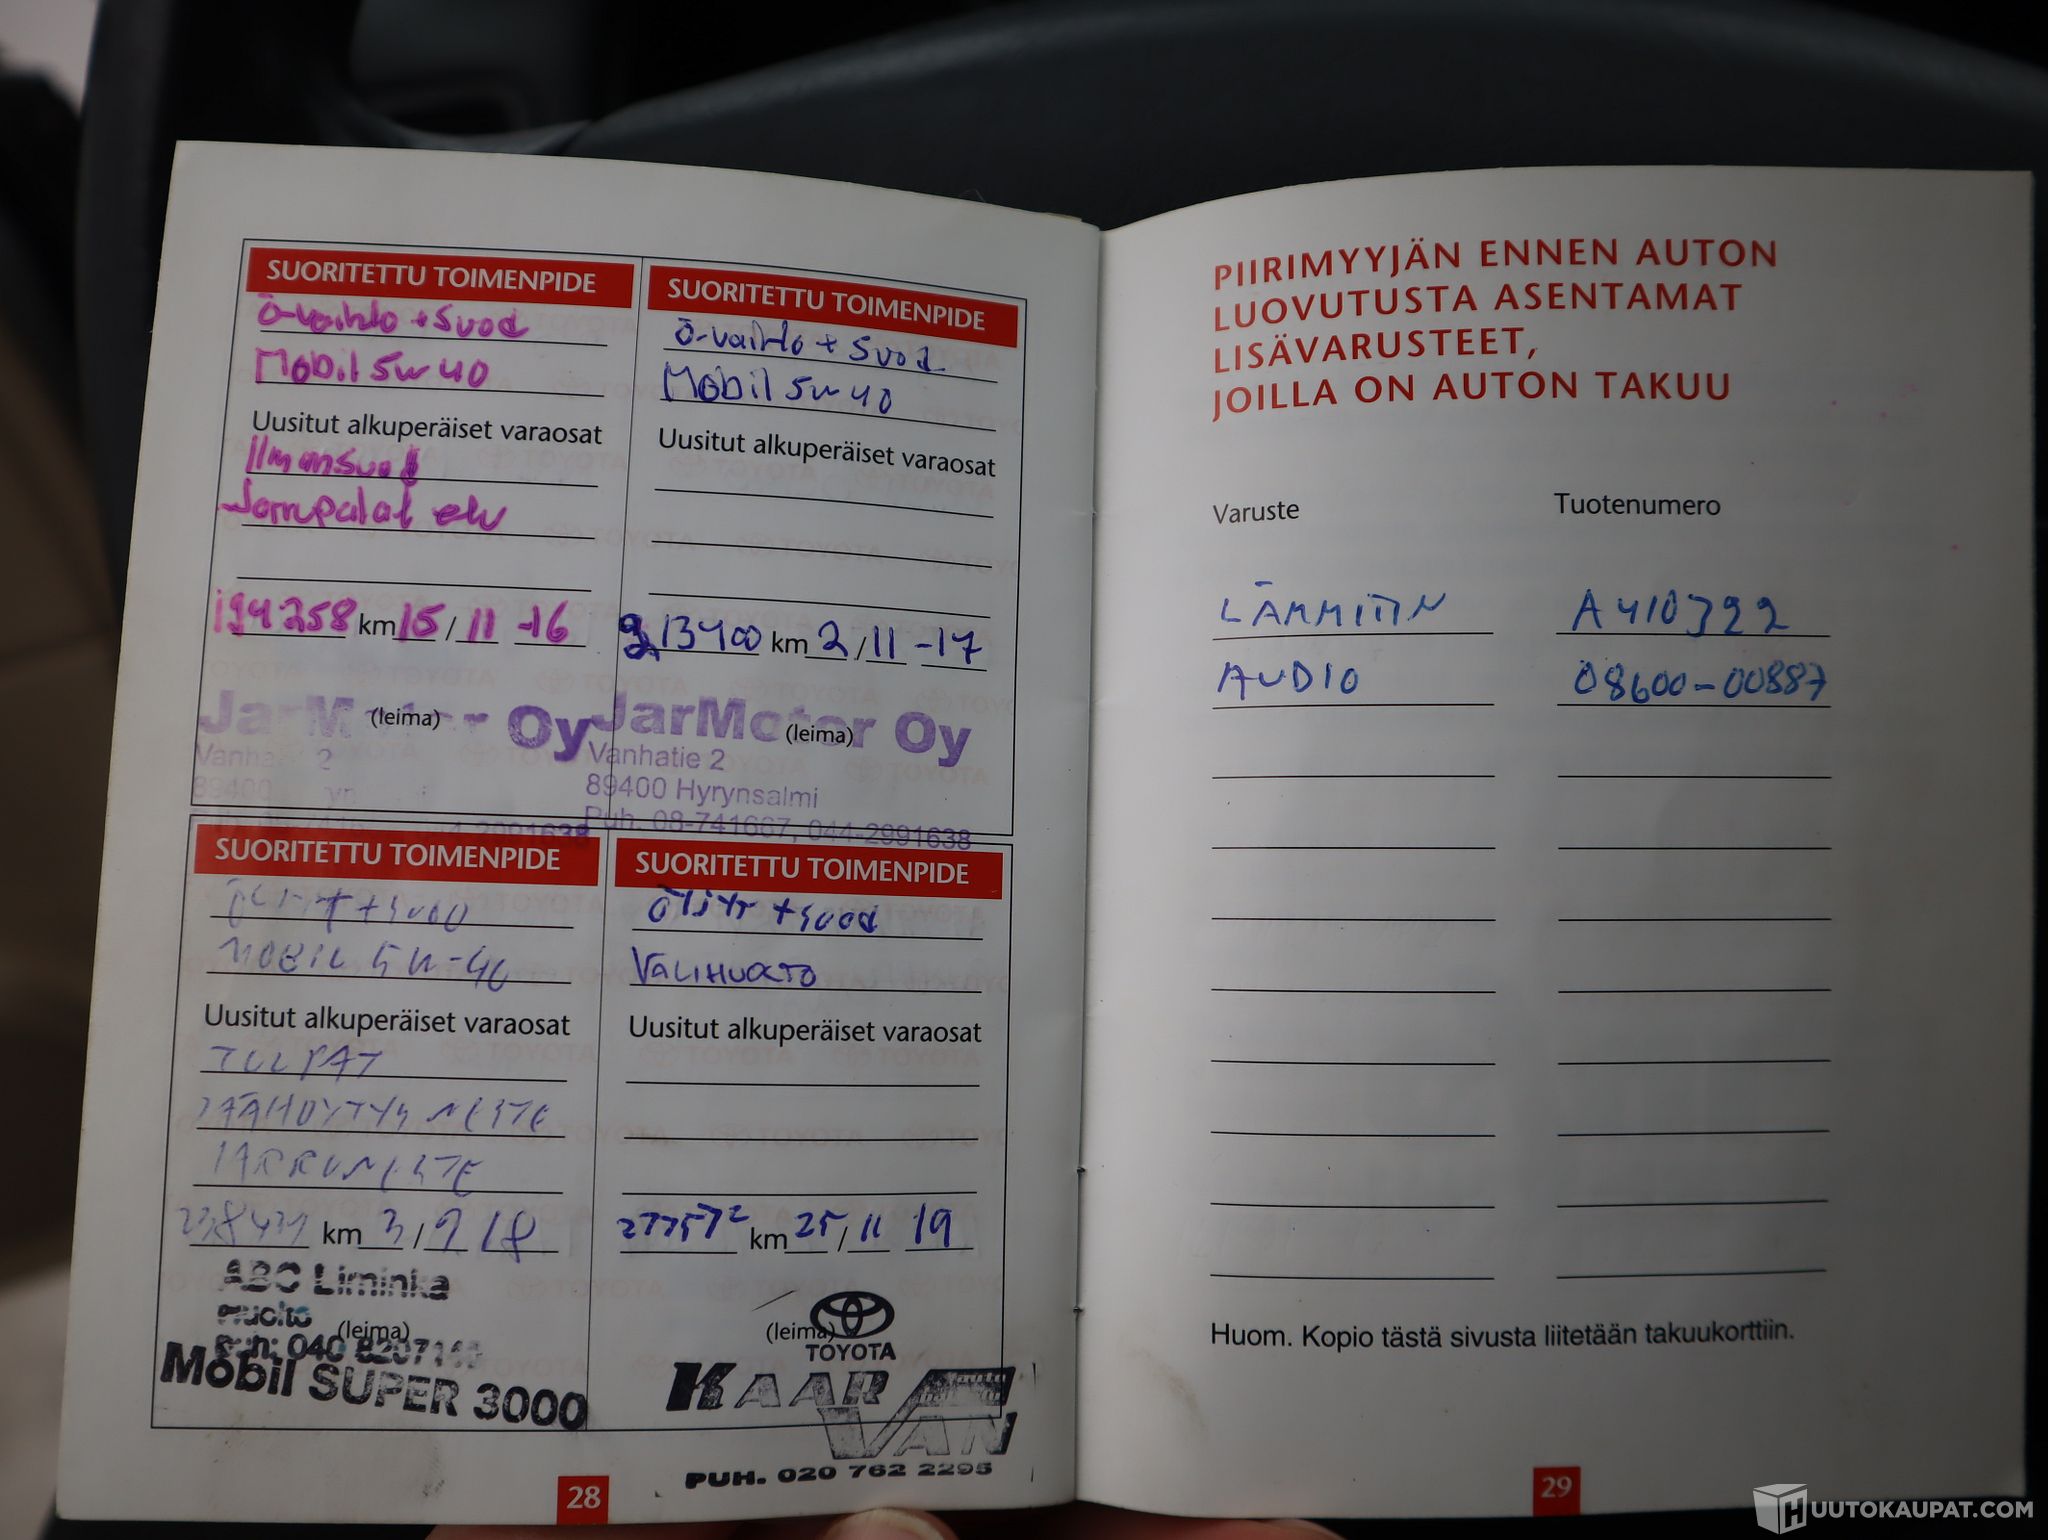 SUORITETTU TOIMENPIDE
ö-vaihto + Suod
Mobil 5w40
Uusitut alkuperäiset varaosat
Ilmansuod
Jarrupalat etu
194258 km 15/11 -16
JarMotor Oy
(leima)
Vanhatie 2
89400
044-2991638
SUORITETTU TOIMENPIDE
ö-vaihto + Suod
Mobil 5w40
Uusitut alkuperäiset varaosat
213400 km 2/11 -17
JarMotor Oy
(leima)
Vanhatie 2
89400 Hyrynsalmi
Puh. 08-741667, 044-2991638
SUORITETTU TOIMENPIDE
+ SUOD
MOBIL 5W-40
Uusitut alkuperäiset varaosat
TULPAT
JÄÄHDYTYS NESTE
JARRUNESTE
km 3/9 18
ABC Liminka
Huolto
(leima)
Puh: 040
Mobil SUPER 3000
SUORITETTU TOIMENPIDE
+ suod
VÄLIHUOLTO
Uusitut alkuperäiset varaosat
277572 km 25/11 19
(leima)
TOYOTA
KAAR
VAN
PUH. 020 762 2295
28
PIIRIMYYJÄN ENNEN AUTON
LUOVUTUSTA ASENTAMAT
LISÄVARUSTEET,
JOILLA ON AUTON TAKUU
Varuste Tuotenumero
LÄMMITIN A410322
AUDIO 08600-00887
Huom. Kopio tästä sivusta liitetään takuukorttiin.
29
HUUTOKAUPAT.COM